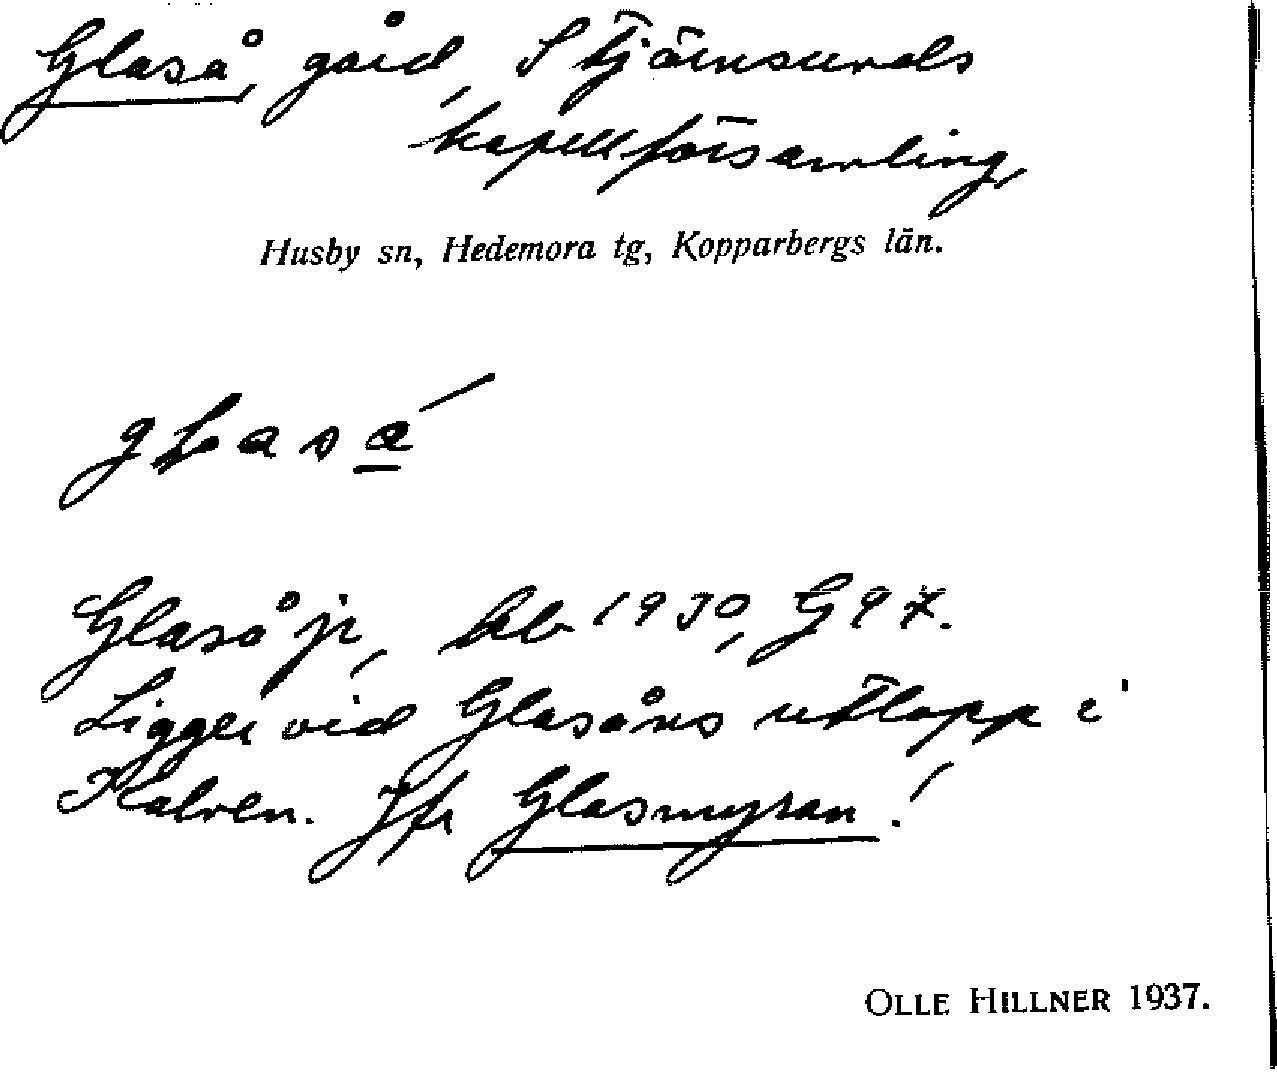 Glaså, gård, Stjärnsunds
kapellförsamling,
Husby sn, Hedemora tg, Kopparbergs län.
Glaså jr, kb 1930, G 97.
Ligger vid Glasåns utlopp i
Kalven. Jfr Glasmyran!
OLLE HILLNER 1937.